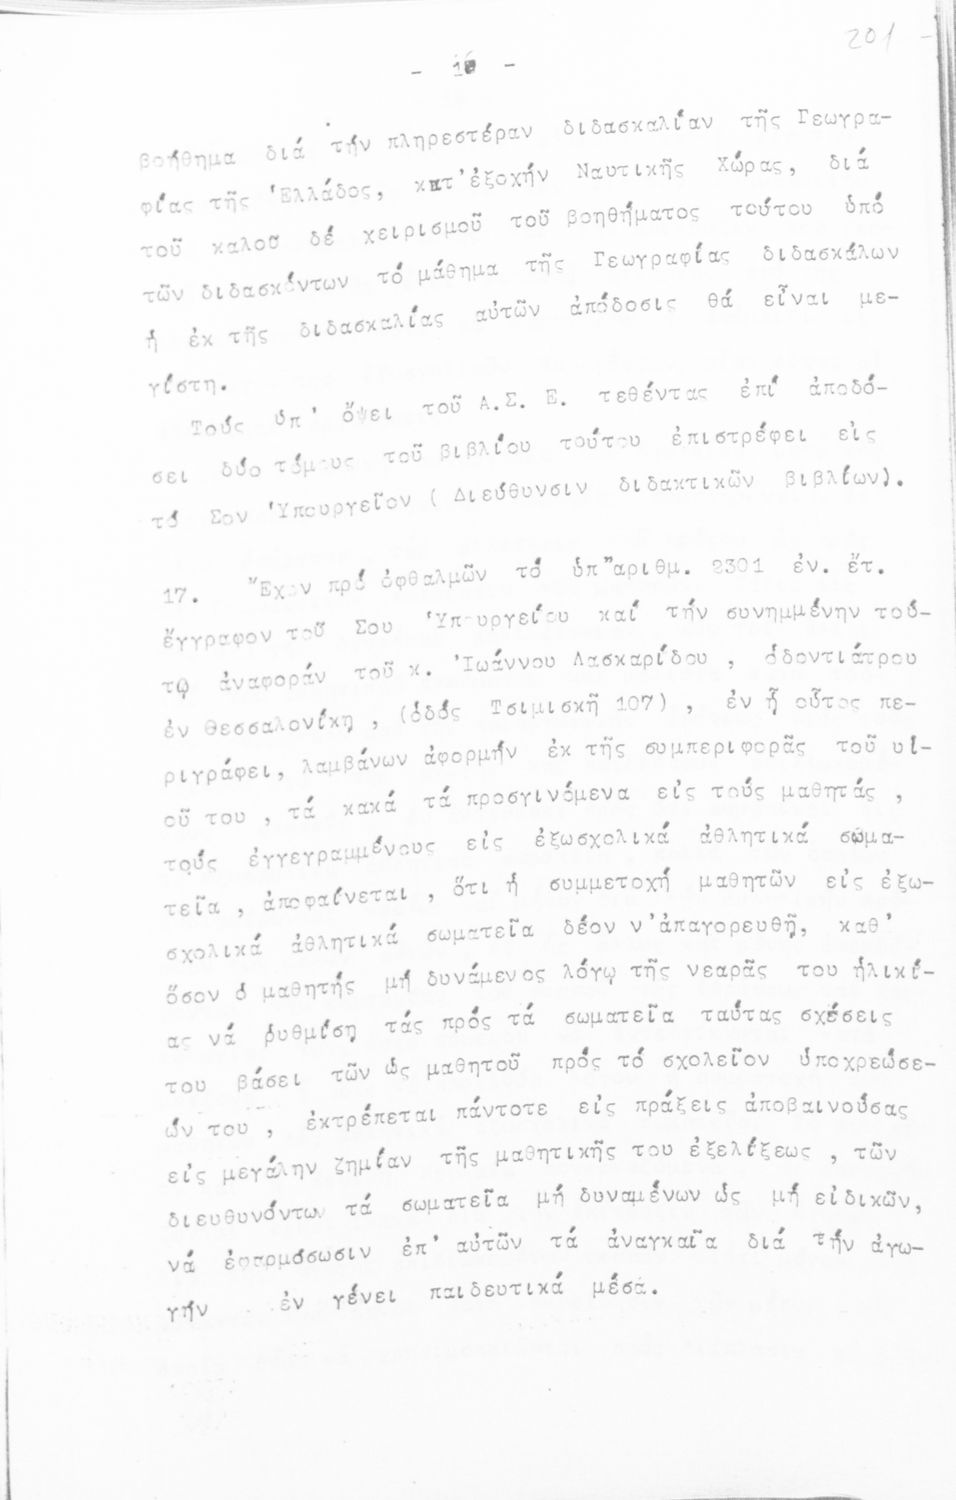 201
- 16 -
βοήθημα διά τήν πληρεστέραν διδασκαλίαν τῆς Γεωγρα-
φίας τῆς Ἑλλάδος, κατ' ἐξοχήν Ναυτικῆς Χώρας, διά
τοῦ καλοῦ δέ χειρισμοῦ τοῦ βοηθήματος τούτου ὑπό
τῶν διδασκόντων τό μάθημα τῆς Γεωγραφίας διδασκάλων
ἡ ἐκ τῆς διδασκαλίας αὐτῶν ἀπόδοσις θά εἶναι με-
γίστη.
Τούς ὑπ' ὄψει τοῦ Α.Σ. Ε. τεθέντας ἐπί ἀποδό-
σει δύο τόμους τοῦ βιβλίου τούτου ἐπιστρέφει εἰς
τό Σον Ὑπουργεῖον ( Διεύθυνσιν διδακτικῶν βιβλίων).
17. Ἔχον πρό ὀφθαλμῶν τό ὑπ"αριθμ. 2301 ἐν. ἔτ.
ἔγγραφον τοῦ Σου Ὑπουργείου καί τήν συνημμένην τού-
τῳ ἀναφοράν τοῦ κ. Ἰωάννου Λασκαρίδου , ὀδοντιάτρου
ἐν Θεσσαλονίκῃ , (ὁδός Τσιμισκῆ 107) , ἐν ᾗ οὗτος πε-
ριγράφει, λαμβάνων ἀφορμήν ἐκ τῆς συμπεριφορᾶς τοῦ υἱ-
οῦ του , τά κακά τά προσγινόμενα εἰς τούς μαθητάς ,
τούς ἐγγεγραμμένους εἰς ἐξωσχολικά ἀθλητικά σωμα-
τεῖα , ἀποφαίνεται , ὅτι ἡ συμμετοχή μαθητῶν εἰς ἐξω-
σχολικά ἀθλητικά σωματεῖα δέον ν' ἀπαγορευθῇ, καθ'
ὅσον ὁ μαθητής μή δυνάμενος λόγῳ τῆς νεαρᾶς του ἡλικί-
ας νά ρυθμίσῃ τάς πρός τά σωματεῖα ταῦτας σχέσεις
του βάσει τῶν ὡς μαθητοῦ πρός τό σχολεῖον ὑποχρεώσε-
ών του , ἐκτρέπεται πάντοτε εἰς πράξεις ἀποβαινούσας
εἰς μεγάλην ζημίαν τῆς μαθητικῆς του ἐξελίξεως , τῶν
διευθυνόντων τά σωματεῖα μή δυναμένων ὡς μή εἰδικῶν,
νά ἐφαρμόσωσιν ἐπ' αὐτῶν τά ἀναγκαῖα διά τήν ἀγω-
γήν ἐν γένει παιδευτικά μέσα.